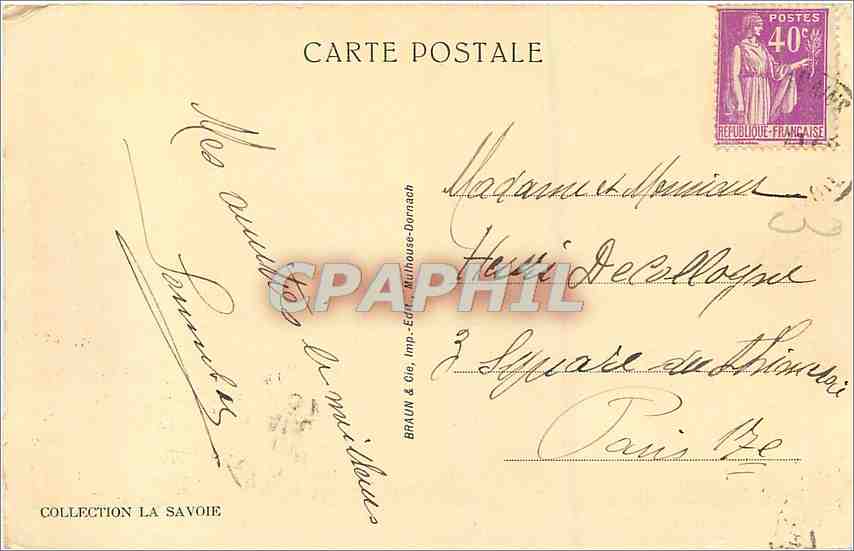 CARTE POSTALE
POSTES
40c
RÉPUBLIQUE-FRANÇAISE
Mes amitiés les meilleures
BRAUN & Cie, Imp.-Edit., Mulhouse-Dornach
Madame et Monsieur
Henri Decollogne
3 Square du Thimerais
Paris 17e
CPAPHIL
COLLECTION LA SAVOIE